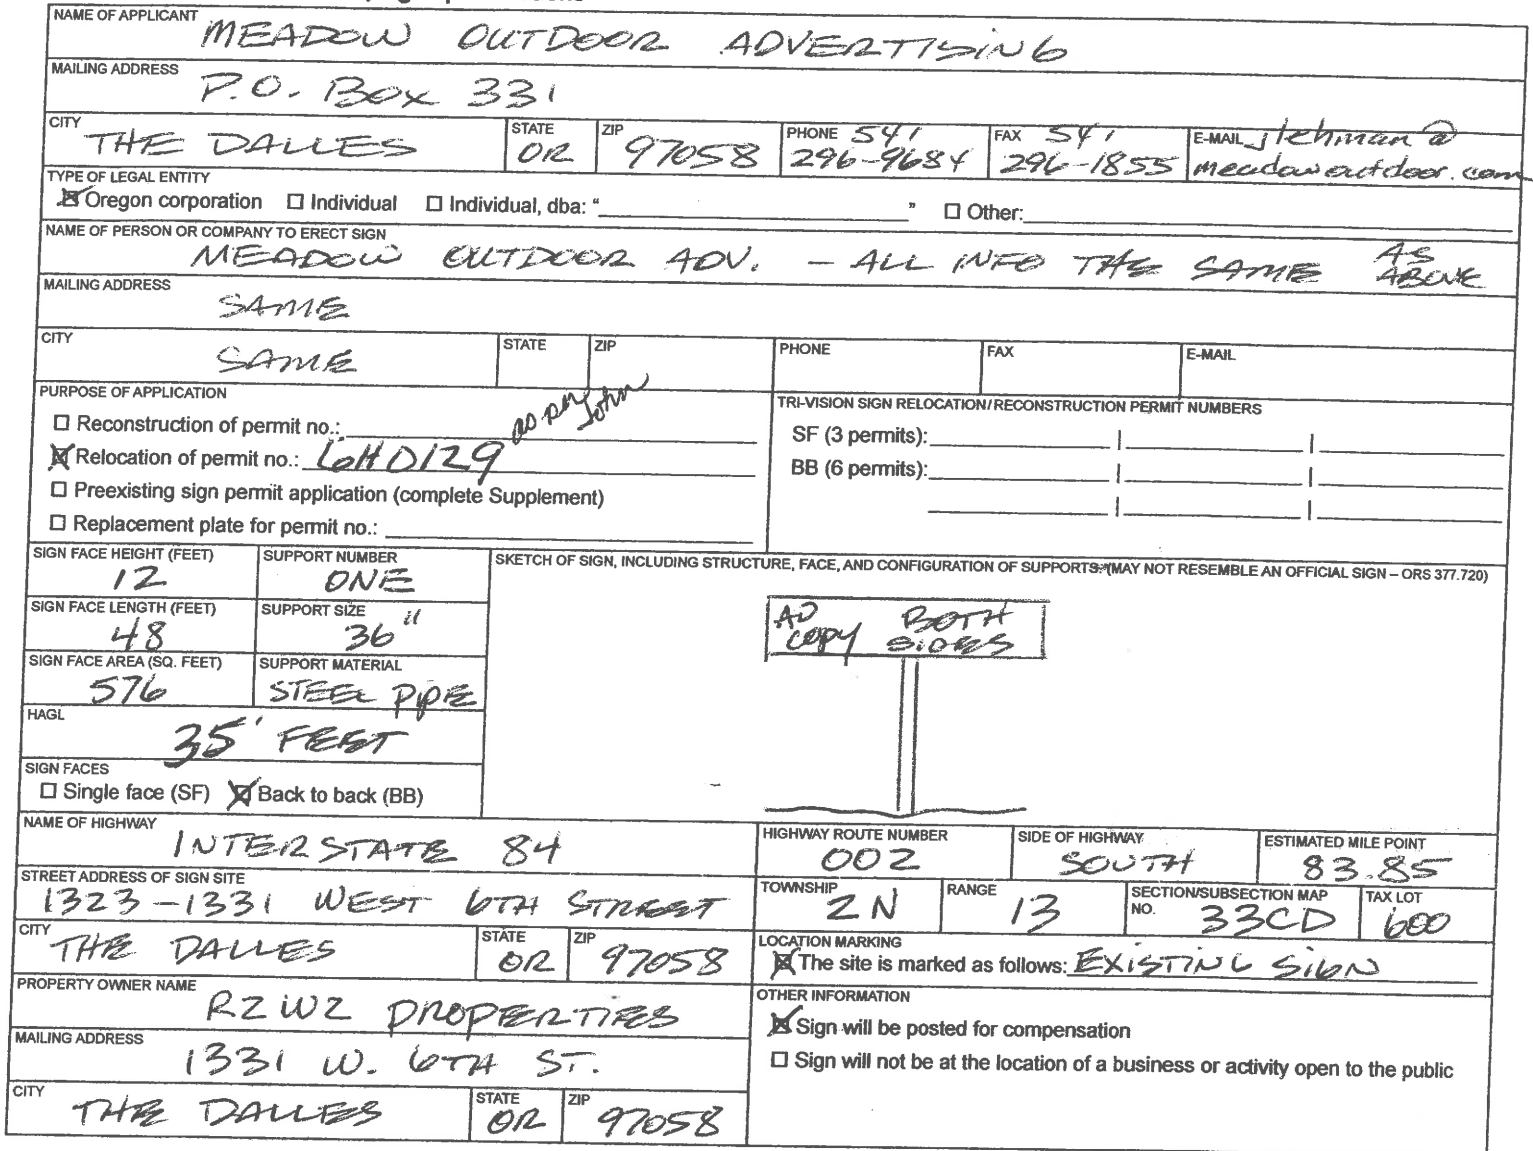 NAME OF APPLICANT MEADOW OUTDOOR ADVERTISING
MAILING ADDRESS P.O. Box 331
CITY THE DALLES STATE OR ZIP 97058 PHONE 541 296-9684 FAX 541 296-1855 E-MAIL jlehman@meadowoutdoor.com
TYPE OF LEGAL ENTITY
☒ Oregon corporation ☐ Individual ☐ Individual, dba: "____" ☐ Other:____
NAME OF PERSON OR COMPANY TO ERECT SIGN
MEADOW OUTDOOR ADV. - ALL INFO THE SAME AS ABOVE
MAILING ADDRESS SAME
CITY SAME STATE ZIP PHONE FAX E-MAIL
PURPOSE OF APPLICATION
☐ Reconstruction of permit no.:____
☒ Relocation of permit no.: 6HD129 as per John
☐ Preexisting sign permit application (complete Supplement)
☐ Replacement plate for permit no.:____
TRI-VISION SIGN RELOCATION/RECONSTRUCTION PERMIT NUMBERS
SF (3 permits):____|____|____
BB (6 permits):____|____|____
____|____|____
SIGN FACE HEIGHT (FEET) 12 SUPPORT NUMBER ONE
SIGN FACE LENGTH (FEET) 48 SUPPORT SIZE 36"
SIGN FACE AREA (SQ. FEET) 576 SUPPORT MATERIAL STEEL PIPE
HAGL 35' FEET
SIGN FACES
☐ Single face (SF) ☒ Back to back (BB)
SKETCH OF SIGN, INCLUDING STRUCTURE, FACE, AND CONFIGURATION OF SUPPORTS (MAY NOT RESEMBLE AN OFFICIAL SIGN – ORS 377.720)
AD COPY BOTH SIDES
NAME OF HIGHWAY INTERSTATE 84 HIGHWAY ROUTE NUMBER 002 SIDE OF HIGHWAY SOUTH ESTIMATED MILE POINT 83.85
STREET ADDRESS OF SIGN SITE 1323-1331 WEST 6TH STREET TOWNSHIP 2N RANGE 13 SECTION/SUBSECTION MAP NO. 33CD TAX LOT 600
CITY THE DALLES STATE OR ZIP 97058
LOCATION MARKING
☒ The site is marked as follows: EXISTING SIGN
PROPERTY OWNER NAME R2W2 PROPERTIES
MAILING ADDRESS 1331 W. 6TH ST.
CITY THE DALLES STATE OR ZIP 97058
OTHER INFORMATION
☒ Sign will be posted for compensation
☐ Sign will not be at the location of a business or activity open to the public